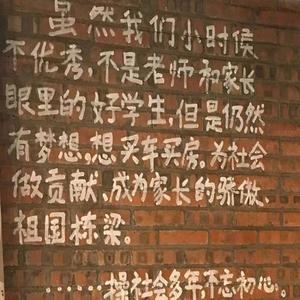 虽然我们小时候
不优秀，不是老师和家长
眼里的好学生，但是仍然
有梦想，想买车买房。为社会
做贡献、成为家长的骄傲、
祖国栋梁。
……操社会多年不忘初心。